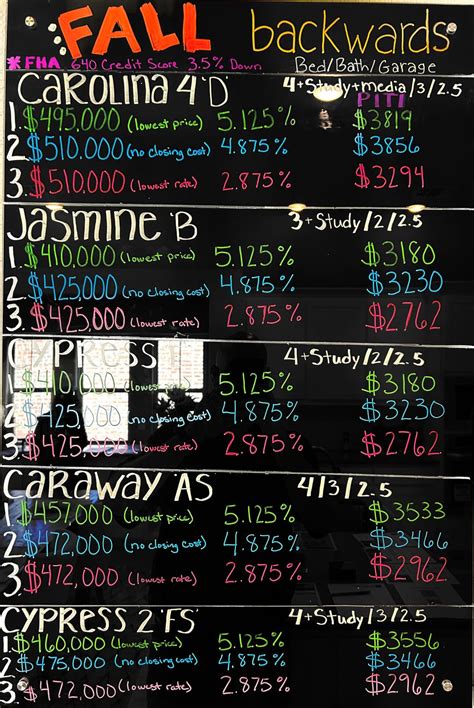 FALL backwards
*FHA 640 Credit Score 3.5% Down Bed/Bath/Garage
CAROLINA 4 'D' 4+Study+media/3/2.5
PITI
1. $495,000 (lowest price) 5.125% $3819
2. $510,000 (no closing cost) 4.875% $3856
3. $510,000 (lowest rate) 2.875% $3294
JASMINE 'B 3+Study/2/2.5
1. $410,000 (lowest price) 5.125% $3180
2. $425,000 (no closing cost) 4.875% $3230
3. $425,000 (lowest rate) 2.875% $2762
CYPRESS 4+Study/2/2.5
1. $410,000 (lowest price) 5.125% $3180
2. $425,000 (no closing cost) 4.875% $3230
3. $425,000 (lowest rate) 2.875% $2762
CARAWAY AS 4/3/2.5
1. $457,000 (lowest price) 5.125% $3533
2. $472,000 (no closing cost) 4.875% $3466
3. $472,000 (lowest rate) 2.875% $2962
CYPRESS 2 'FS' 4+Study/3/2.5
1. $460,000 (lowest price) 5.125% $3556
2. $475,000 (no closing cost) 4.875% $3466
3. $472,000 (lowest rate) 2.875% $2962